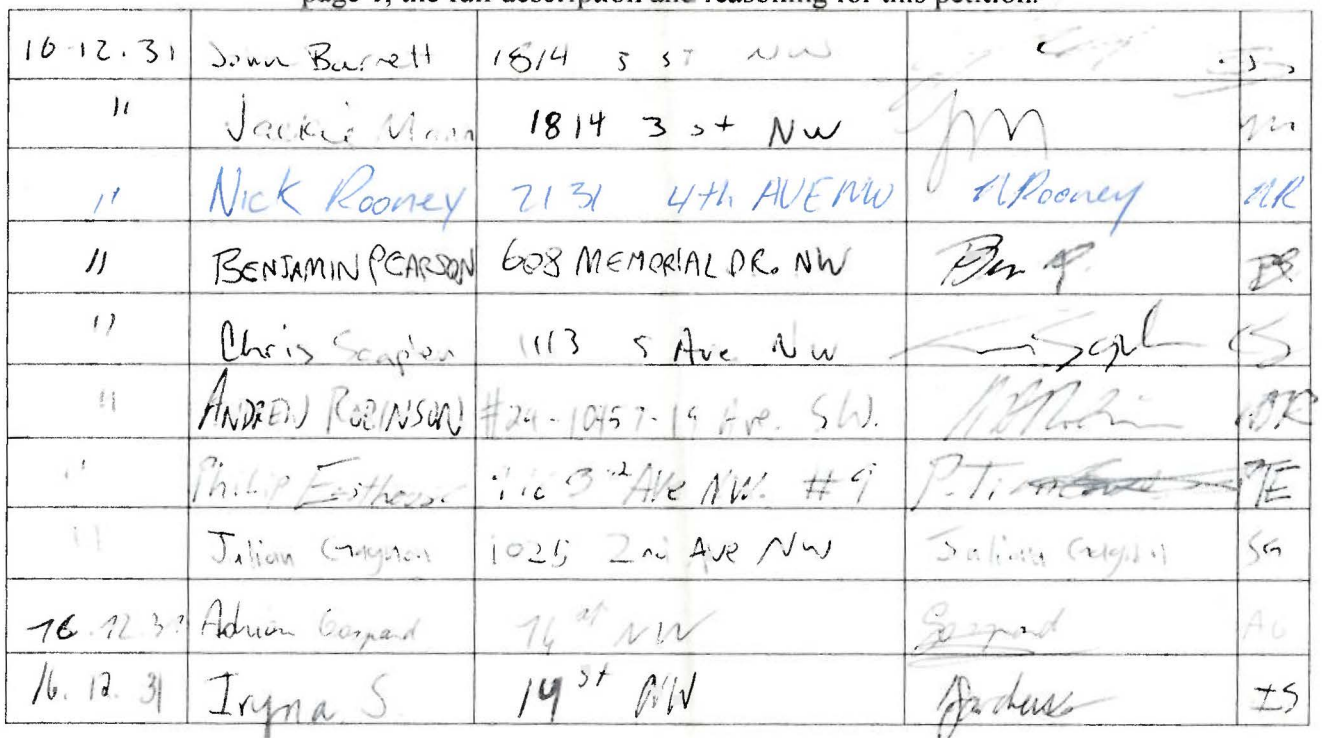 page 1, the full description and reasoning for this petition.
16.12.31 John Barrett 1814 3 ST NW
" Jackie Mann 1814 3 st NW JM
" Nick Rooney 2131 4th AVE NW N Rooney NR
" BENJAMIN PEARSON 608 MEMORIAL DR. NW Ben P. BP
" Chris 1113 5 Ave NW CS
" ANDREW ROBINSON #24-10457-19 Ave. SW. AR
" Philip 3rd Ave NW. #9 P.T. PTE
" Julian Gagnon 1025 2nd Ave NW Julian Gagnon JG
16.12.31 Adrian Gaspard 14 st NW Gaspard AG
16.12.31 Iryna S. 14 st NW IS